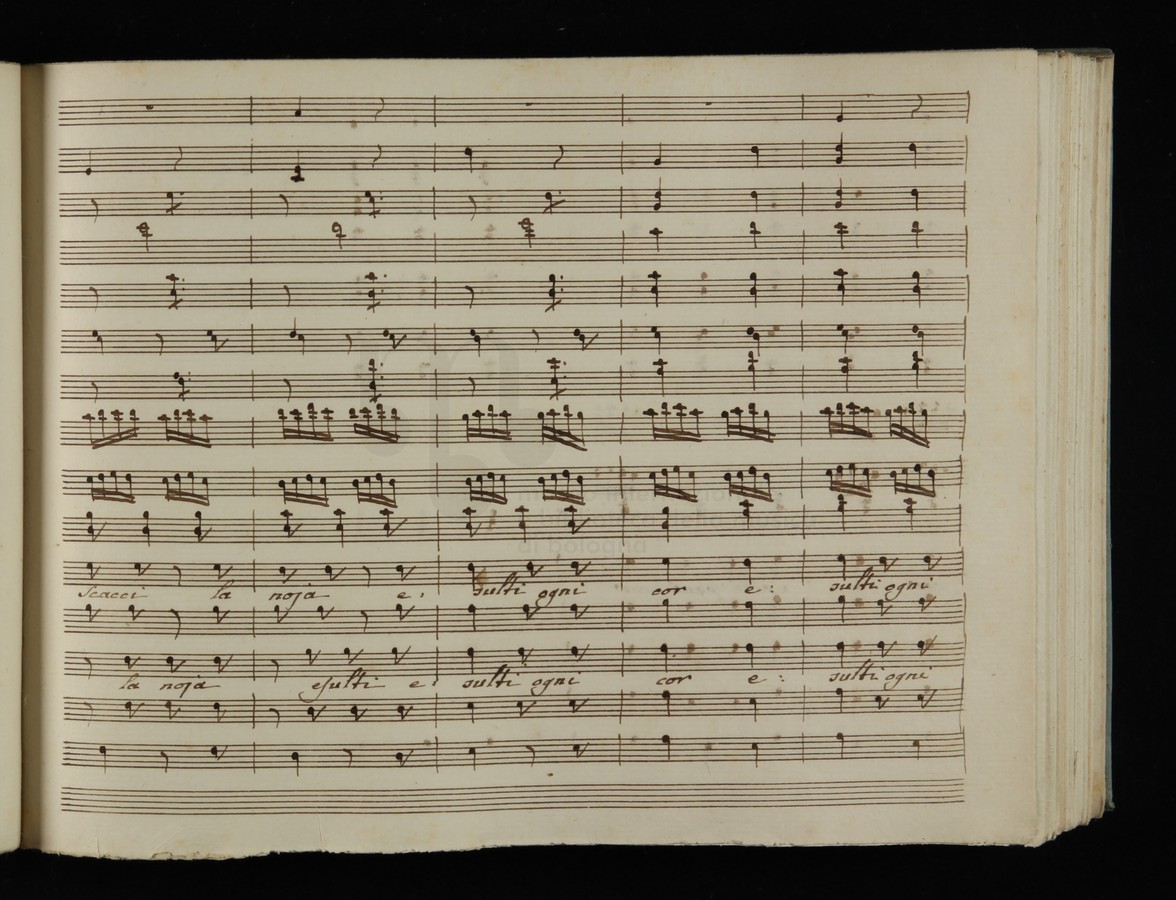 scacci la noja e : sulti ogni cor e : sulti ogni
la noja esulti e : sulti ogni cor e : sulti ogni
museo internazionale
di bologna